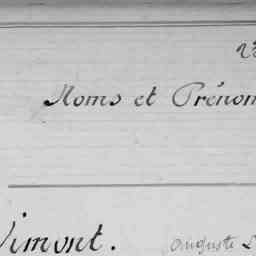 Noms et Prénom
Vimont. Auguste